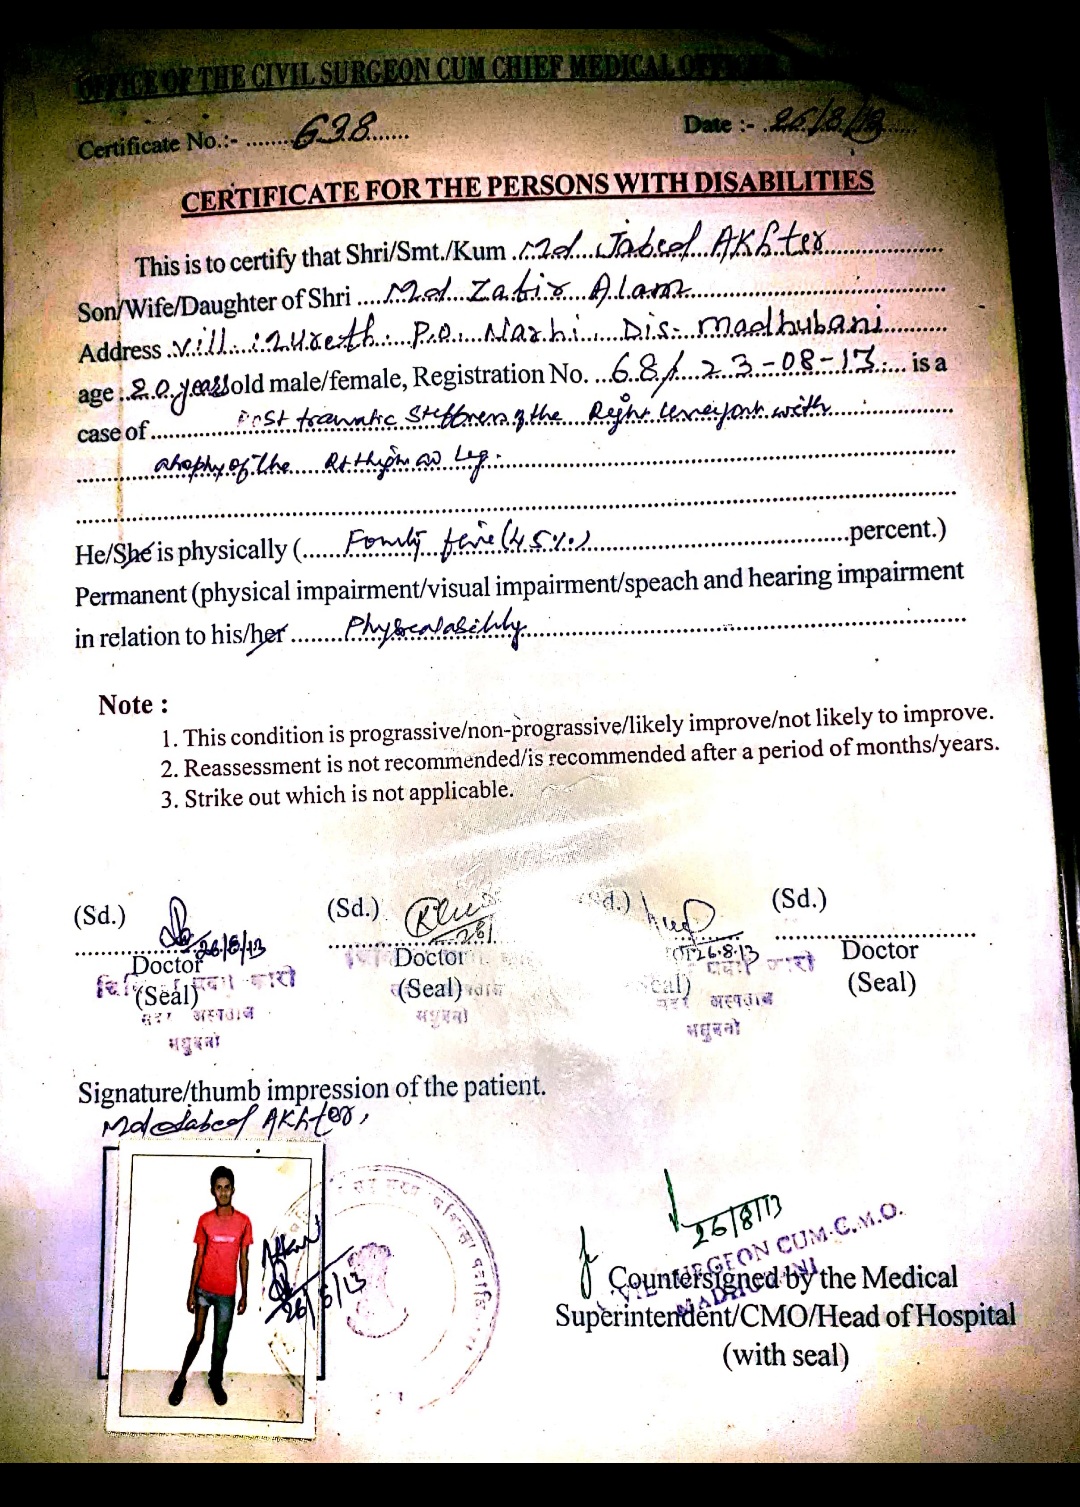 OFFICE OF THE CIVIL SURGEON CUM CHIEF MEDICAL OFFICER
Certificate No.:- 638
Date :- 26/8/13
CERTIFICATE FOR THE PERSONS WITH DISABILITIES
This is to certify that Shri/Smt./Kum Md Jabed AKhter
Son/Wife/Daughter of Shri Md Zabir Alam
Address Vill : P.O. Narhi Dis- madhubani
age 20 years old male/female, Registration No. 68/ 23-08-13 is a
case of Post traumatic Stiffness of the Right with
atrophy of the Rt thigh Leg.
He/She is physically ( Fourty five (45%) percent.)
Permanent (physical impairment/visual impairment/speach and hearing impairment
in relation to his/her
Note :
1. This condition is prograssive/non-prograssive/likely improve/not likely to improve.
2. Reassessment is not recommended/is recommended after a period of months/years.
3. Strike out which is not applicable.
(Sd.) (Sd.) (Sd.) (Sd.)
26/8/13 26.8.13
Doctor Doctor Doctor
(Seal) (Seal) (Seal)
सदर अस्पताल सदर अस्पताल
मधुबनी मधुबनी मधुबनी
Signature/thumb impression of the patient.
Md Jabed AKhter
26/8/13
26/8/13
CIVIL SURGEON CUM-C.M.O.
MADHUBANI
Countersigned by the Medical
Superintendent/CMO/Head of Hospital
(with seal)